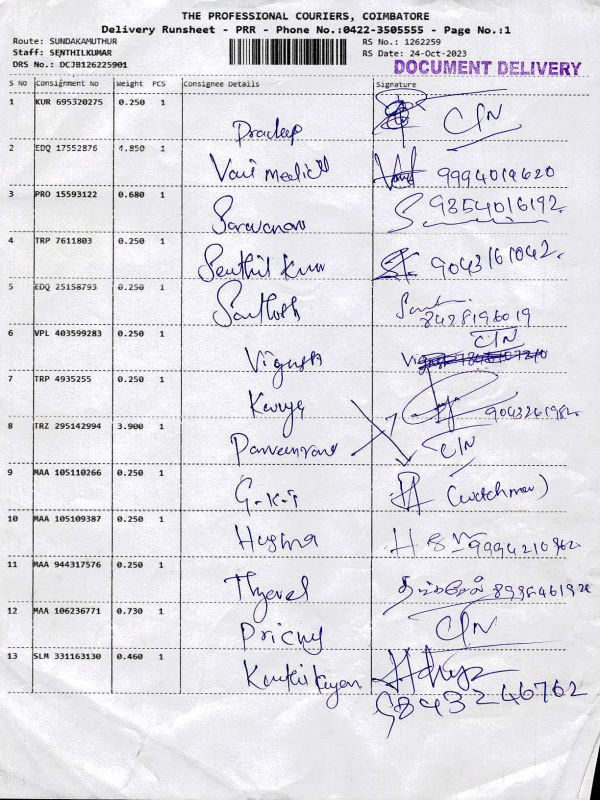 THE PROFESSIONAL COURIERS, COIMBATORE
Delivery Runsheet - PRR - Phone No.:0422-3505555 - Page No.:1
Route: SUNDAKAMUTHUR RS No.: 1262259
Staff: SENTHILKUMAR RS Date: 24-Oct-2023
DRS No.: DCJB126225901 DOCUMENT DELIVERY
S NO Consignment No Weight PCS Consignee Details Signature
1 KUR 695320275 0.250 1
Pradeep C/N
2 EDQ 17552876 4.850 1
Vani medical 9994019620
3 PRO 15593122 0.680 1
Saravanan 9354016192
4 TRP 7611803 0.250 1
Senthil Kumar 9043161042
5 EDQ 25158793 0.250 1
Santhosh 8428196019
6 VPL 403599283 0.250 1 C/N
7 TRP 4935255 0.250 1
Kavya
8 TRZ 295142994 3.900 1
C/N
9 MAA 105110266 0.250 1
G-K-T (watchman)
10 MAA 105109387 0.250 1
9994210962
11 MAA 944317576 0.250 1
12 MAA 106236771 0.730 1
C/N
13 SLM 331163130 0.460 1